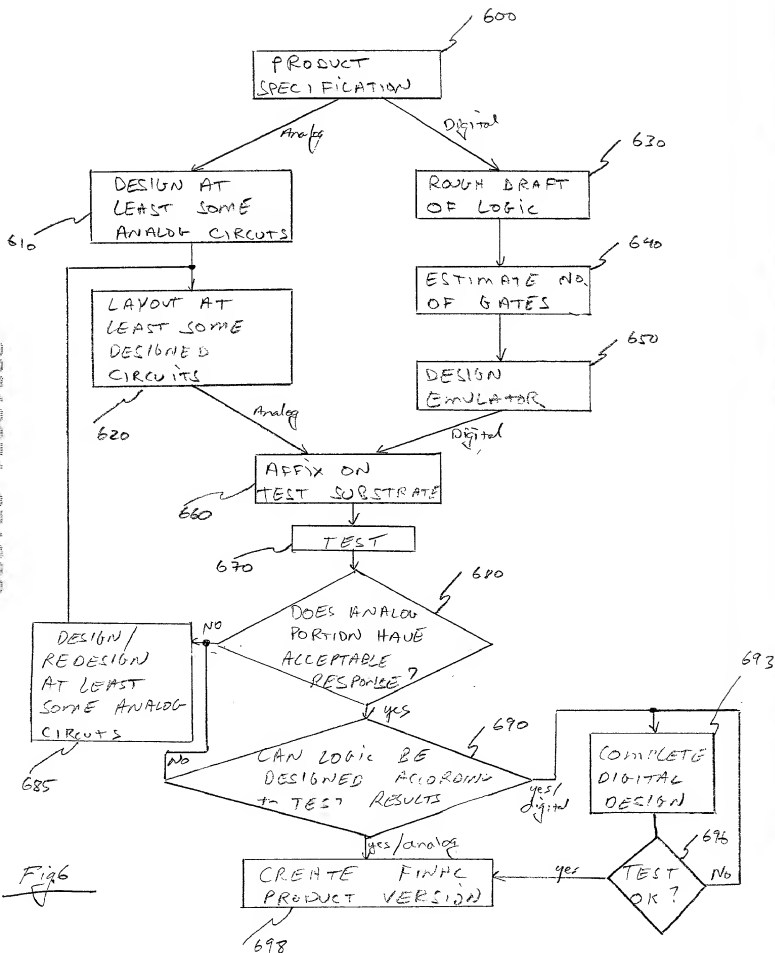 600
PRODUCT
SPECIFICATION
Analog
Digital
630
DESIGN AT
LEAST SOME
ANALOG CIRCUTS
610
ROUGH DRAFT
OF LOGIC
640
ESTIMATE NO.
OF GATES
LAYOUT AT
LEAST SOME
DESIGNED
CIRCUITS
620
650
DESIGN
EMULATOR
Analog
Digital
AFFIX ON
TEST SUBSTRATE
660
TEST
670
680
DOES ANALOG
PORTION HAVE
ACCEPTABLE
RESPONSE?
NO
yes
DESIGN/
REDESIGN
AT LEAST
SOME ANALOG
CIRCUTS
685
690
NO
CAN LOGIC BE
DESIGNED ACCORDING
to TEST RESULTS
yes/
digital
yes/analog
693
COMPLETE
DIGITAL
DESIGN
696
TEST
OK?
No
yes
CREATE FINAL
PRODUCT VERSION
698
Fig 6